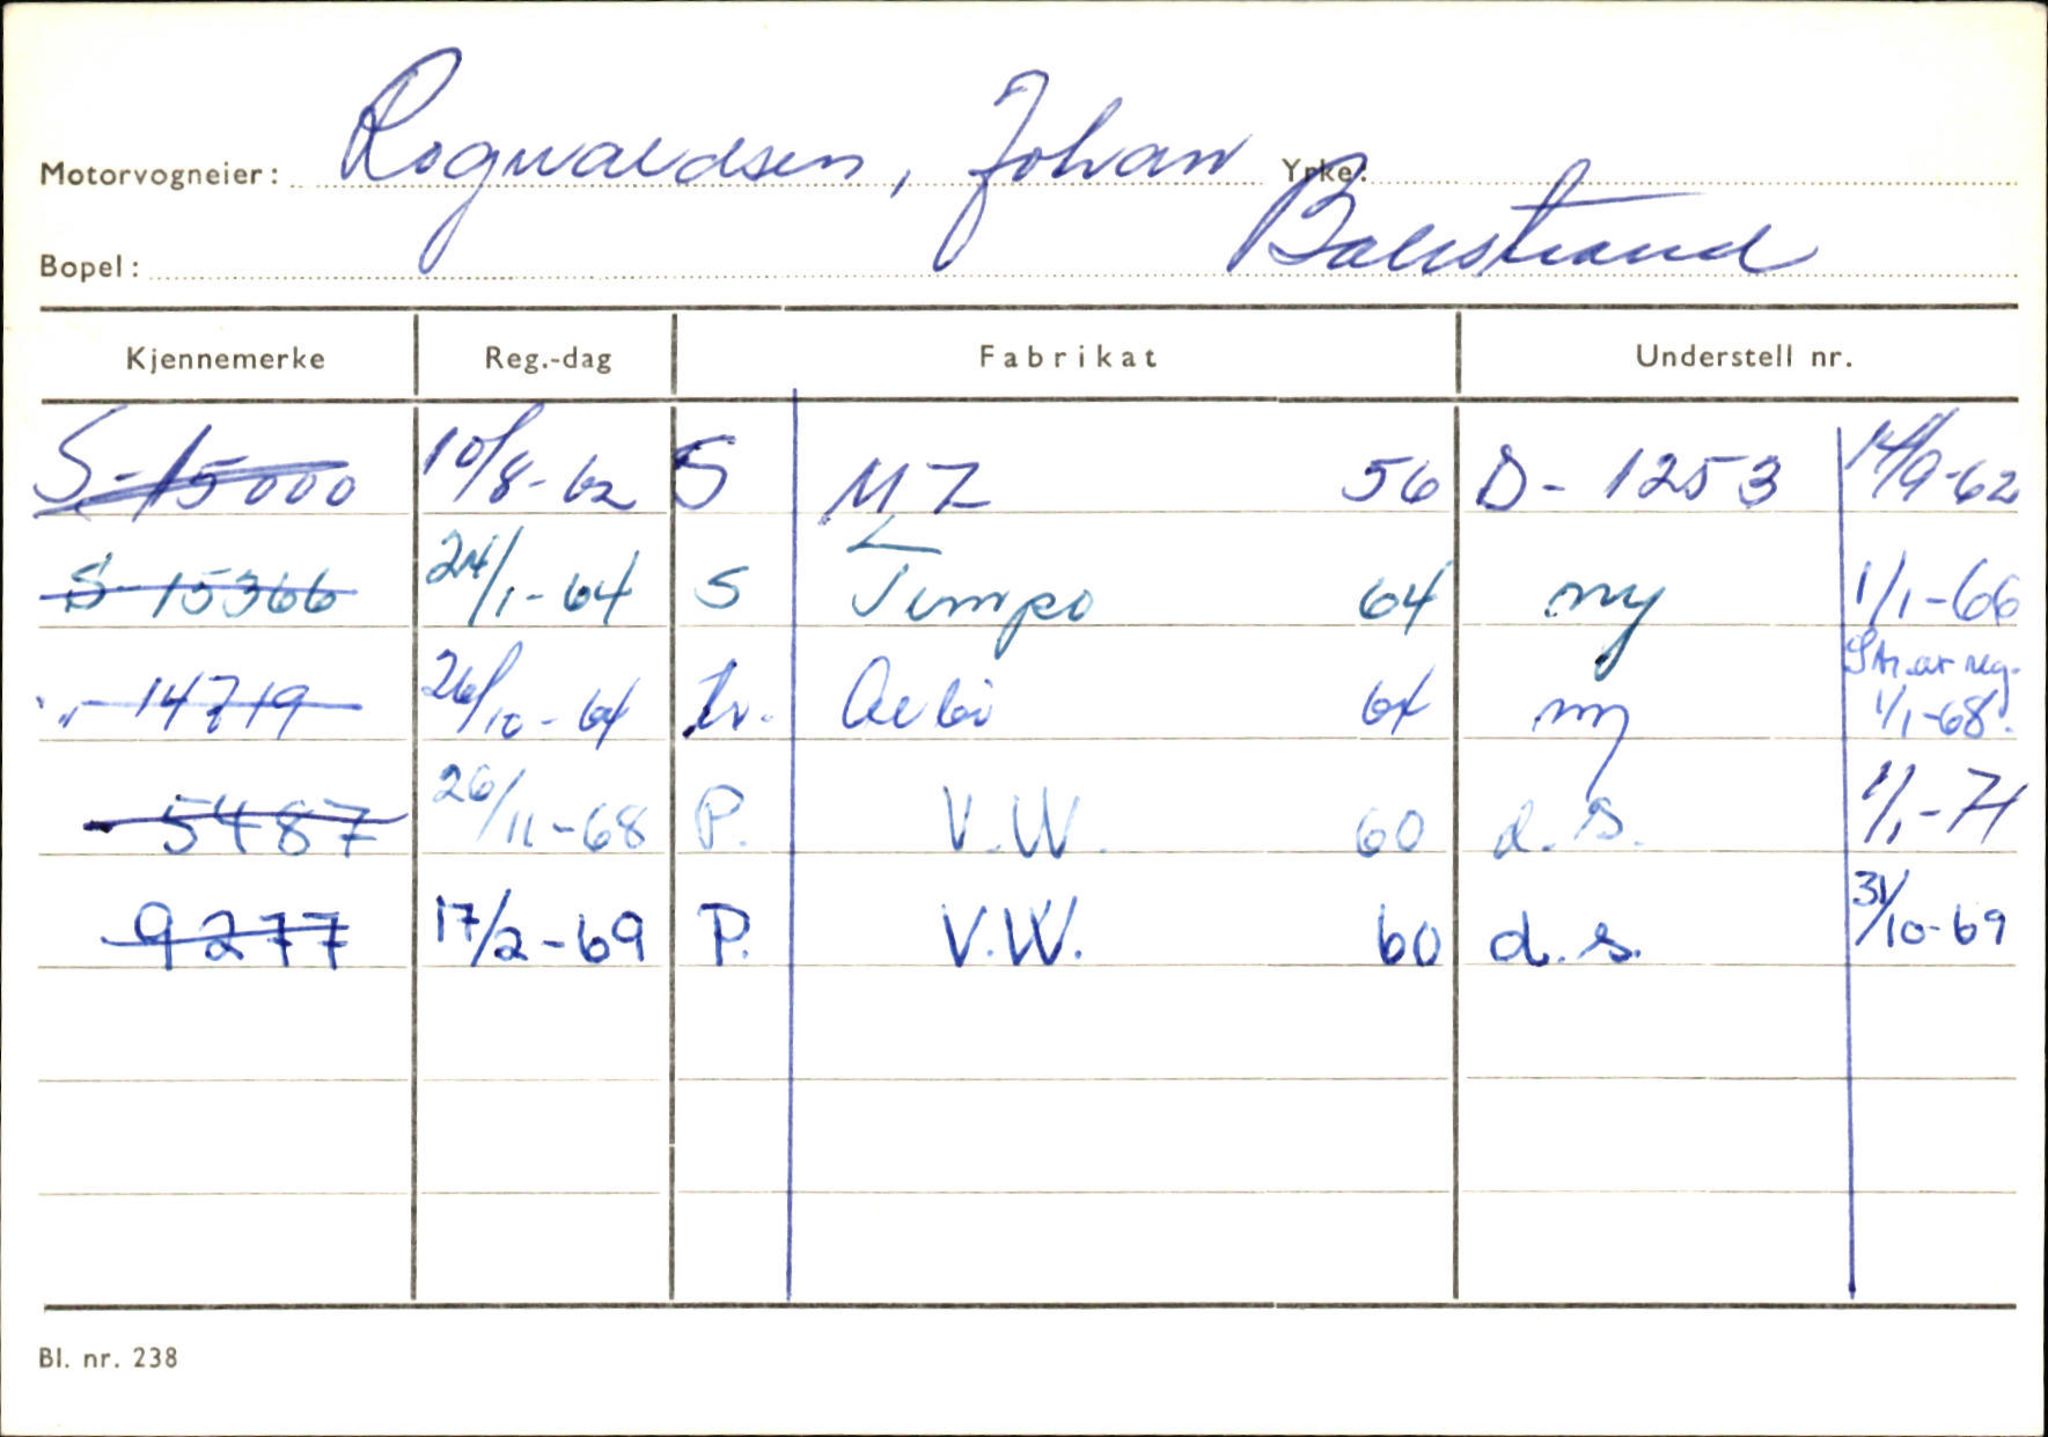 Motorvogneier: Rognvaldsen, Johan Yrke:
Bopel: Balestrand
Kjennemerke Reg.-dag Fabrikat Understell nr.
S-15000 10/8-62 S MZ 56 D-1253 14/9-62
S 15366 24/1-64 S Tempo 64 ny 1/1-66
" - 14719 26/10-64 tr. Aebi 64 ny Str. av reg. 1/1-68.
- 5487 26/11-68 P. V.W. 60 d.s. 1/1-71
9277 17/2-69 P. V.W. 60 d.s. 31/10-69
Bl. nr. 238